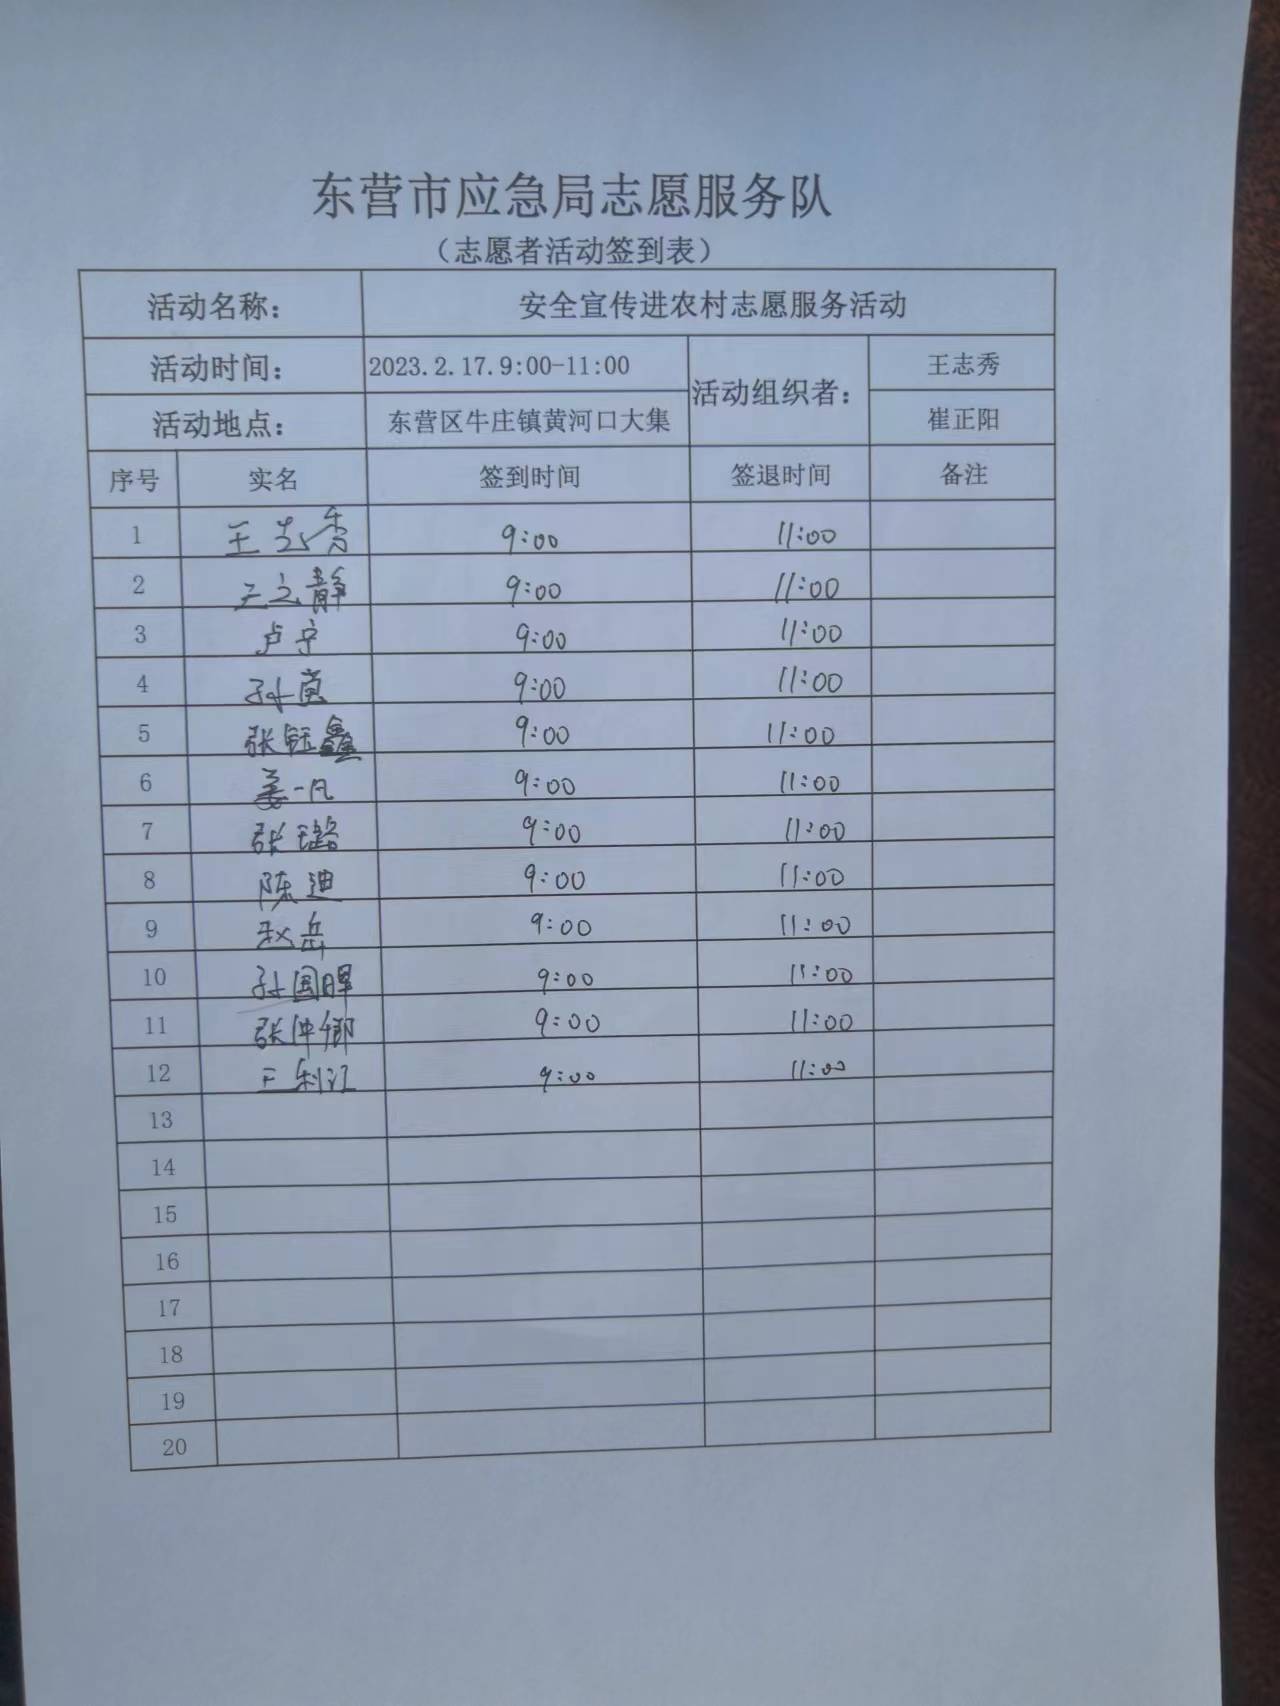 东营市应急局志愿服务队
（志愿者活动签到表）
活动名称： 安全宣传进农村志愿服务活动
活动时间： 2023.2.17.9:00-11:00 活动组织者： 王志秀
活动地点： 东营区牛庄镇黄河口大集 崔正阳
序号 实名 签到时间 签退时间 备注
1 王志秀 9:00 11:00
2 王文静 9:00 11:00
3 卢宁 9:00 11:00
4 孙寅 9:00 11:00
5 张钰鑫 9:00 11:00
6 姜一凡 9:00 11:00
7 张璐 9:00 11:00
8 陈迪 9:00 11:00
9 赵岳 9:00 11:00
10 孙国晖 9:00 11:00
11 张仲卿 9:00 11:00
12 王利江 9:00 11:00
13
14
15
16
17
18
19
20